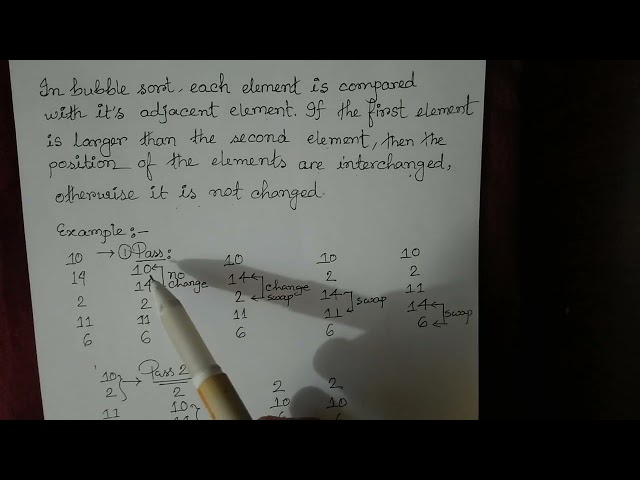 In bubble sort, each element is compared
with it's adjacent element. If the first element
is larger than the second element, then the
position of the elements are interchanged,
otherwise it is not changed.
Example:-
10 → ① Pass: 10 10 10
14 10 no 14 change 2 2
2 14 change 2 swap 14 swap 11
11 2 11 11 14 swap
6 11 6 6 6
6
10 → Pass 2
2 2 2 2
11 10 10 10